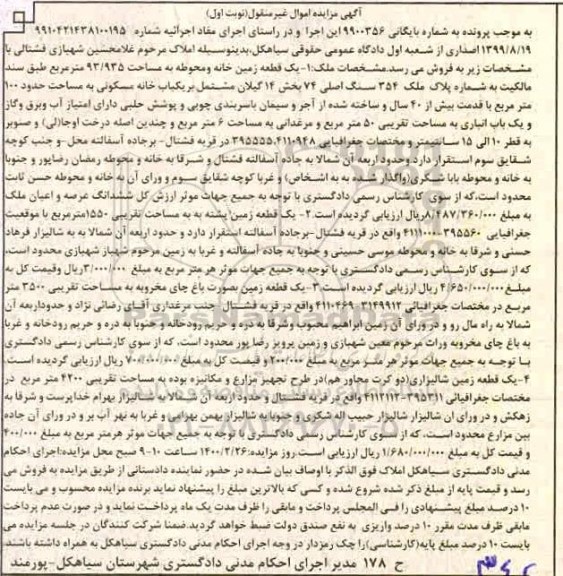 آگهی مزایده اموال غیرمنقول(نوبت اول)
به موجب پرونده به شماره بایگانی ۹۹۰۰۳۵۶ این اجرا و در راستای اجرای مفاد اجرائیه شماره ۹۹۱۰۴۲۱۴۳۸۱۰۰۱۹۵
۱۳۹۹/۸/۱۹ اصداری از شعبه اول دادگاه عمومی حقوقی سیاهکل،بدینوسیله املاک مرحوم غلامحسین شهبازی فشتالی با
مشخصات زیر به فروش می رسد.مشخصات ملک:۱-یک قطعه زمین خانه ومحوطه به مساحت ۹۳/۹۳۵ مترمربع طبق سند
مالکیت به شماره پلاک ملک ۳۵۴ سنگ اصلی ۷۴ بخش ۱۴ گیلان مشتمل بریکباب خانه مسکونی به مساحت حدود ۱۰۰
متر مربع با قدمت بیش از ۴۰ سال و ساخته شده از آجر و سیمان باسربندی چوبی و پوشش حلبی دارای امتیاز آب وبرق وگاز
و یک باب انباری به مساحت تقریبی ۵۰ متر مربع و مرغدانی به مساحت ۶ متر مربع و چندین اصله درخت اوجا(لی) و صنوبر
به قطر ۱۰ الی ۱۵ سانتیمتر ومختصات جغرافیایی ۳۹۵۵۵۵.۴۱۱۰۹۴۸ در قریه فشتال- برجاده آسفالته محل-و جنب کوچه
شقایق سوم استقرار دارد.وحدود اربعه آن شمالا به جاده آسفالته فشتال و شرقا به خانه و محوطه رمضان رضاپور و جنوبا
به خانه و محوطه بابا شگری(واگذار شده به به اشخاص) و غربا کوچه شقایق سوم و ورای آن به خانه و محوطه حسن ثابت
محدود است،که از سوی کارشناس رسمی دادگستری با توجه به جمیع جهات موثر ارزش کل ششدانگ عرصه و اعیان ملک
به مبلغ ۸/۴۸۷/۳۶۰/۰۰۰ریال ارزیابی گردیده است.۲- یک قطعه زمین پشته به به مساحت تقریبی ۱۵۵۰مترمربع با موقعیت
جغرافیایی ۳۹۵۵۶۰-۴۱۱۱۰۰۰ واقع در قریه فشتال-برجاده آسفالته استقرار دارد و حدود اربعه آن شمالا به به شالیزار فرهاد
حسنی و شرقا به خانه و محوطه موسی حسینی و جنوبا به جاده آسفالته و غربا به زمین مرحوم شهباز شهبازی محدود است،
که از سوی کارشناس رسمی دادگستری با توجه به جمیع جهات موثر هر متر مربع به مبلغ ۳/۰۰۰/۰۰۰ریال وقیمت کل به
مبلغ ۴/۶۵۰/۰۰۰/۰۰۰ ریال ارزیابی گردیده است.۳-یک قطعه زمین بصورت باغ چای مخروبه به مساحت تقریبی ۳۵۰۰ متر
مربع در مختصات جغرافیایی ۳۱۴۹۹۱۲-۴۱۱۰۴۶۹ واقع در قریه فشتال- جنب مرغداری آقای رضائی نژاد و حدوداربعه آن
شمالا به راه مال رو و در ورای آن زمین ابراهیم محبوب وشرقا به دره و حریم رودخانه و جنوبا به دره و حریم رودخانه و غربا
به باغ چای مخروبه وراث مرحوم معین شهبازی و زمین پرویز رضا پور محدود است، که از سوی کارشناس رسمی دادگستری
با توجه به جمیع جهات موثر هر متر مربع به مبلغ ۲۰۰/۰۰۰ و قیمت کل به مبلغ ۷۰۰/۰۰۰/۰۰۰ ریال ارزیابی گردیده است.
۴-یک قطعه زمین شالیزاری(دو کرت مجاور هم)در طرح تجهیز مزارع و مکانیزه بوده به مساحت تقریبی ۴۲۰۰ متر مربع در
مختصات جغرافیائی ۳۹۵۳۱۱-۴۱۱۲۱۱۲ واقع در قریه فشتال و حدود اربعه آن شمالا به شالیزار بهرام خداپرست و شرقا به
زهکش و در ورای ان شالیزار شالیزار حبیب اله شکری و جنوبا به شالیزار بهمن بهرامی و غربا به نهر آب بر و در ورای آن جاده
بین مزارع محدود است، که از سوی کارشناس رسمی دادگستری با توجه به جمیع جهات موثر هرمتر مربع به مبلغ ۴۰۰/۰۰۰
و قیمت کل به مبلغ ۱/۶۸۰/۰۰۰/۰۰۰ ریال ارزیابی است. روز مزایده:۱۴۰۰/۲/۲۶ ساعت ۱۰-۹ صبح محل مزایده:اجرای احکام
مدنی دادگستری سیاهکل املاک فوق الذکر با اوصاف بیان شده در حضور نماینده دادستانی از طریق مزایده به فروش می
رسد و قیمت پایه از مبلغ ذکر شده شروع شده و کسی که بالاترین مبلغ را پیشنهاد نماید برنده مزایده محسوب و می بایست
۱۰ درصد مبلغ پیشنهادی را فی المجلس پرداخت و مابقی را ظرف مدت یک ماه پرداخت نماید و در صورت عدم پرداخت
مابقی ظرف مدت مقرر ۱۰ درصد واریزی به نفع صندق دولت ضبط خواهد گردید.ضمنا شرکت کنندگان در جلسه مزایده می
بایست ۱۰ درصد مبلغ پایه(کارشناسی)را چک رمزدار در وجه اجرای احکام مدنی دادگستری سیاهکل به همراه داشته باشند.
ح ۱۷۸ مدیر اجرای احکام مدنی دادگستری شهرستان سیاهکل-پورمند